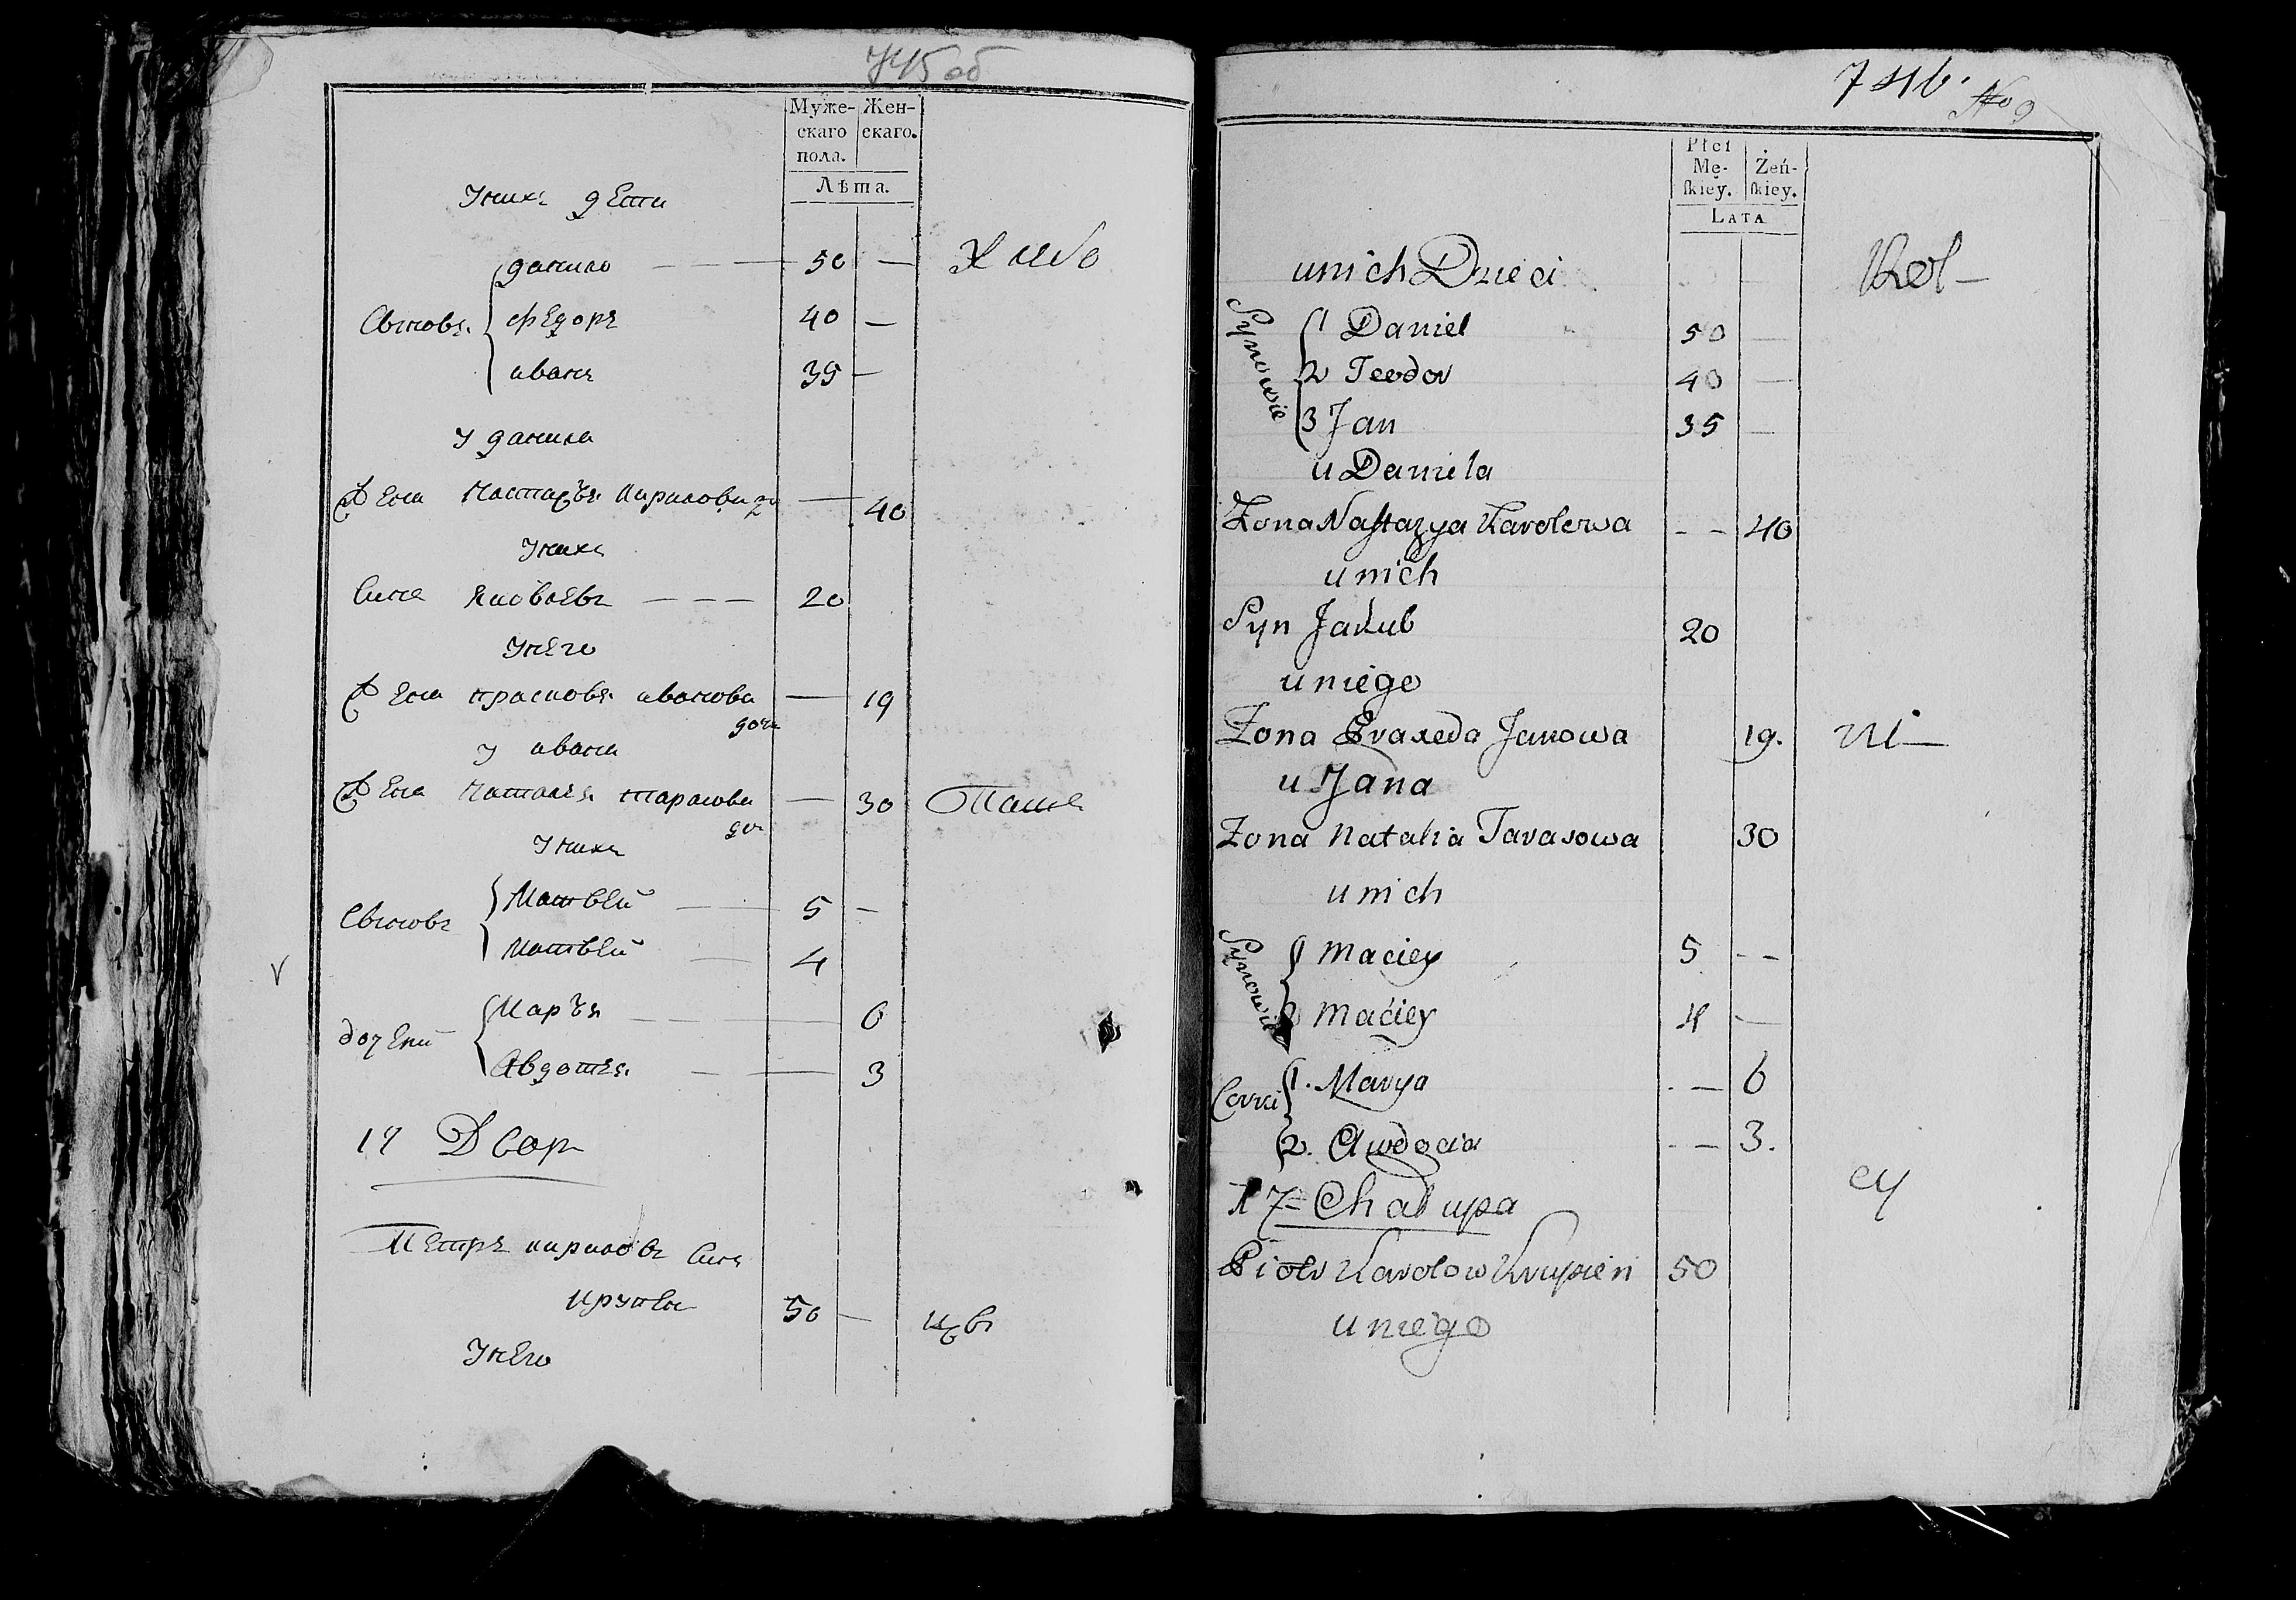 745 об
Муже-
скаго
пола.
Жен-
скаго.
Лѣта.
Уних дети
Сыновя
данило — 50 —
федоръ 40 —
иванъ 35 —
у данила
Жена Настасья кирилова — 40
Уних
Сынъ Яковлевъ — 20
Унего
Жена прасковя иванова дочь — 19
у ивана
Жена Наталья тарасова доч — 30
Уних
Сыновя
Матвей — 5 —
Матвей — 4
дочери
Марья — 6
Авдотья — 3
17 Двор
Петръ кириловъ Сынъ
крупен 50 —
Унего
746.
No 9
Płci
Mę-
skiey.
Żeń-
skiey.
LATA
u nich Dzieci
Synowie
1 Daniel 50 —
2 Teodor 40 —
3 Jan 35 —
u Daniela
Żona Nastazya Karolowa - - 40
u nich
Syn Jakub 20
u niego
Żona Praxeda Janowa 19.
u Jana
Żona Natalia Tarasowa 30
u nich
Synowie
1 Maciey 5 - -
2 Maciey 4 —
Corki
1. Marya - — 6
2. Awdocia - — 3.
17= Chałupa
Piotr Karolow Krupien 50
u niego